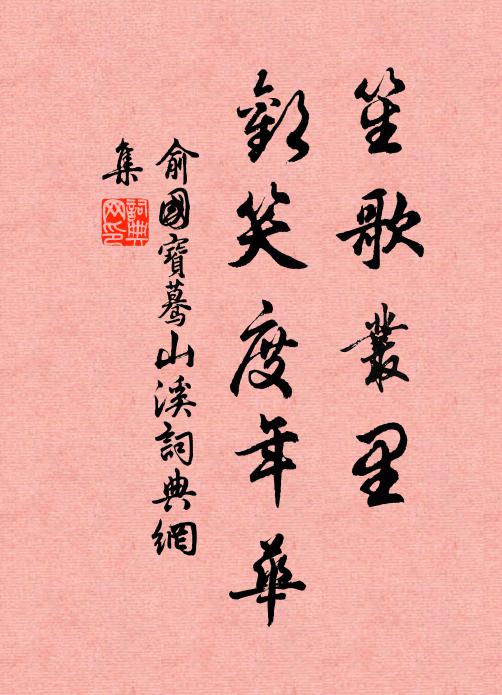 笙歌叢里
歡笑度年華
俞國寶驀山溪詞典網
集
詞典
网印